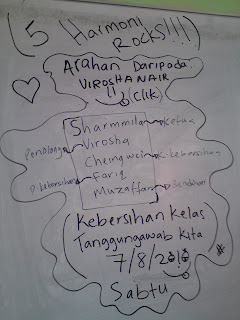 (5 Harmoni
Rocks!!!)
Arahan Daripada:
VIROSHA NAIR
(Clik)
Sharmmila Ketua
Penolong Virosha
Chengwei K.kebersihan
P.kebersihan Fariq
Muzaffar Bendahari
(Kebersihan Kelas
Tanggungawab Kita
7/8/2010
Sabtu